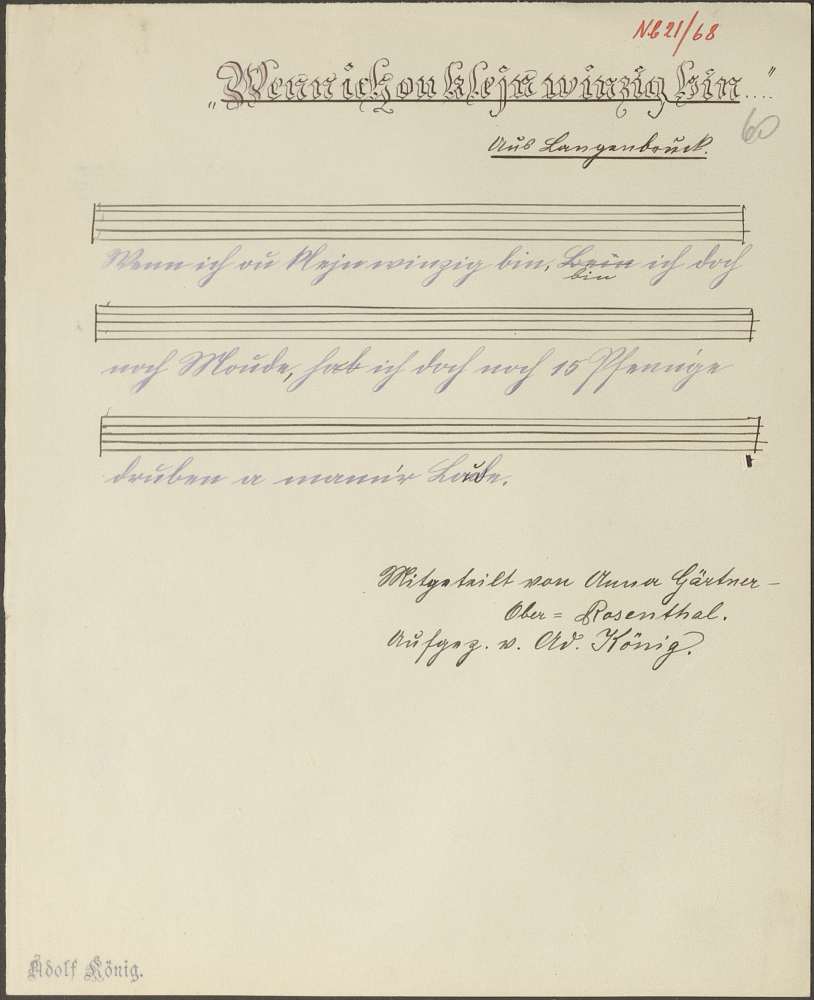 NB 21/68
„Wenn ich ou klejn winzig bin...."
60
Aus Langenbruck.
Wenn ich ou klejn winzig bin, Bein bin ich doch
noch Moude, hab ich doch noch 15 Pfennige
druben a mannr Lade.
Mitgeteilt von Anna Gärtner-
Ober=Rosenthal.
Aufgez. v. Ad. König.
Adolf König.